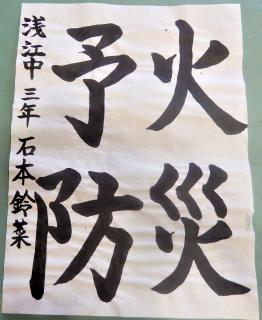 火災
予防
浅江中三年石本鈴菜